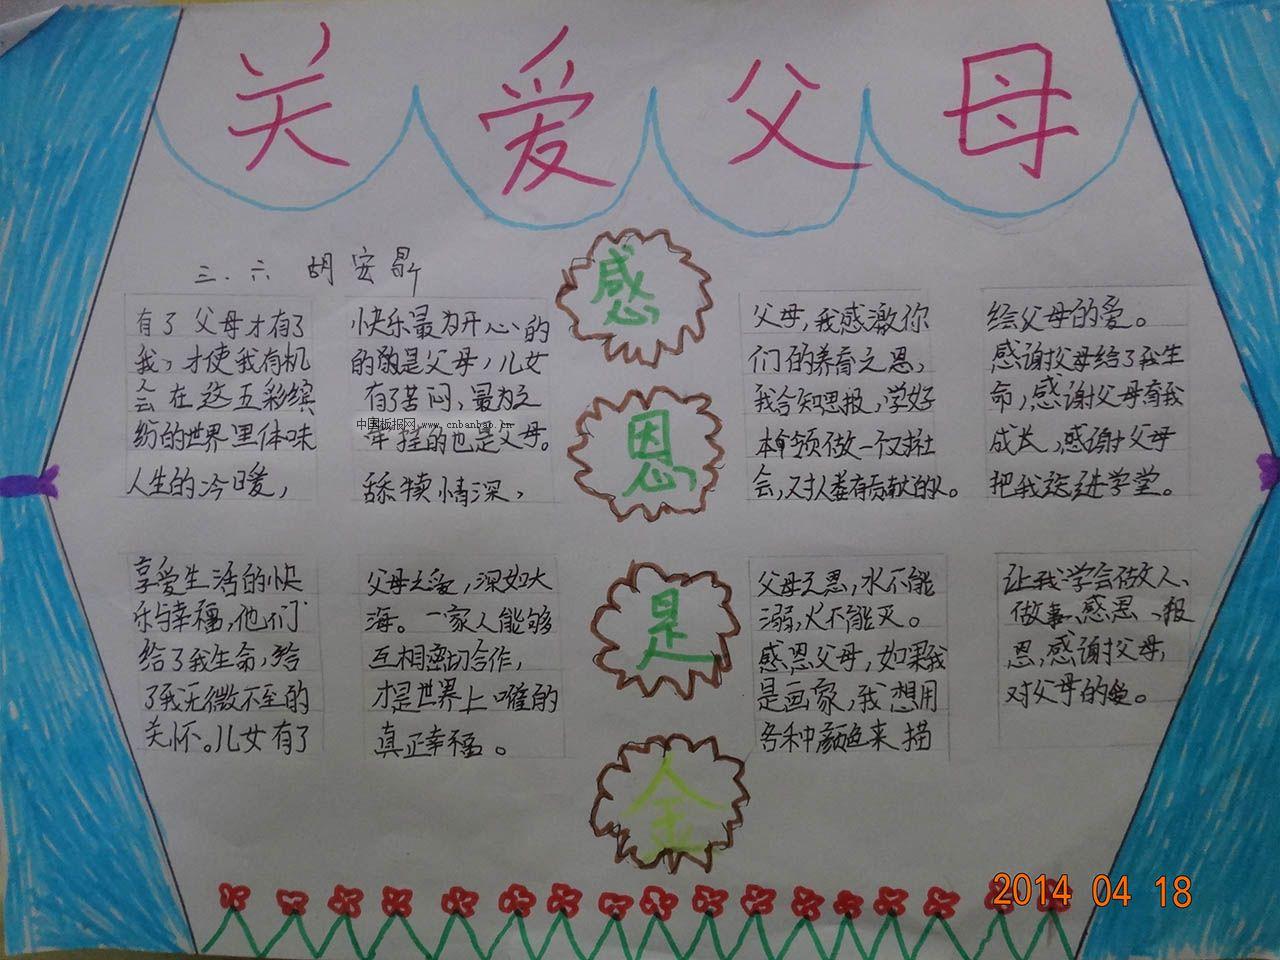 关爱父母
三.六 胡宏
有了父母才有了
我,才使我有机
会在这五彩缤
纷的世界里体味
人生的冷暖,
享爱生活的快
乐与幸福,他们
给了我生命,给
了我无微不至的
关怀。儿女有了
快乐最为开心的
的是父母,儿女
有了苦闷,最为之
牵挂的也是父母。
舐犊情深,
父母之爱,深如大
海。一家人能够
互相密切合作,
才是世界上唯的
真正幸福。
感
恩
是
金
父母,我感激你
们的养育之恩,
我会知恩报,学好
本领做一个对社
会,对人类有贡献的人。
父母之恩,水不能
溺,火不能灭。
感恩父母,如果我
是画家,我想用
各种颜色来描
绘父母的爱。
感谢父母给了我生
命,感谢父母育我
成长,感谢父母
把我送进学堂。
让我学会做人、
做事、感恩、报
恩,感谢父母,
对父母的爱。
中国板报网 www.cnbanbao.cn
2014 04 18